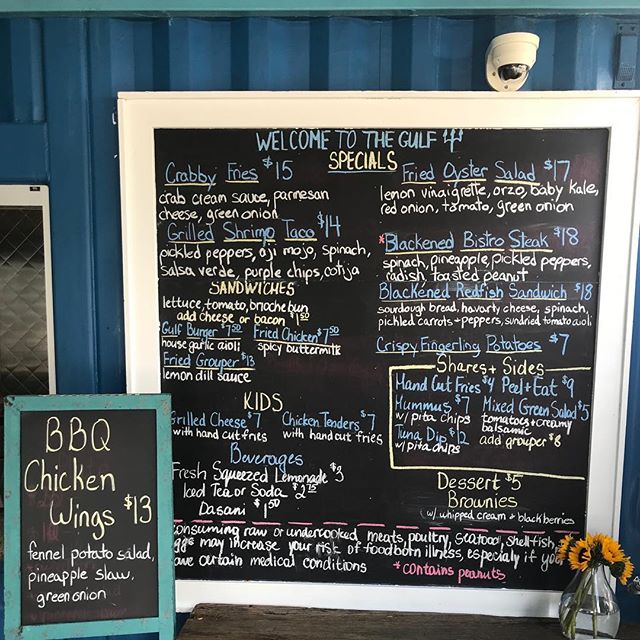 WELCOME TO THE GULF
SPECIALS
Crabby Fries $15
crab cream sauce, parmesan
cheese, green onion
Grilled Shrimp Taco $14
pickled peppers, aji mojo, spinach,
salsa verde, purple chips, cotija
SANDWICHES
lettuce, tomato, brioche bun
add cheese or bacon $1.50
Gulf Burger $7.50
house garlic aioli
Fried Chicken $7.50
spicy buttermilk
Fried Grouper $13
lemon dill sauce
KIDS
Grilled Cheese $7
with hand cut fries
Chicken Tenders $7
with hand cut fries
Beverages
Fresh Squeezed Lemonade $3
Iced Tea or Soda $2.75
Dasani $1.50
Fried Oyster Salad $17
lemon vinaigrette, orzo, baby kale,
red onion, tomato, green onion
*Blackened Bistro Steak $18
spinach, pineapple, pickled peppers,
radish, toasted peanut
Blackened Redfish Sandwich $18
sourdough bread, havarty cheese, spinach,
pickled carrots + peppers, sundried tomato aioli
Crispy Fingerling Potatoes $7
Shares + Sides
Hand Cut Fries $4 Peel + Eat $9
Hummus $7
w/ pita chips
Tuna Dip $12
w/ pita chips
Mixed Green Salad $5
tomatoes + creamy
balsamic
add grouper $8
Dessert $5
Brownies
w/ whipped cream + blackberries
consuming raw or undercooked meats, poultry, seafood, shellfish,
eggs may increase your risk of foodborn illness, especially if you
have certain medical conditions
*contains peanuts
BBQ
Chicken
Wings $13
fennel potato salad,
pineapple slaw,
green onion